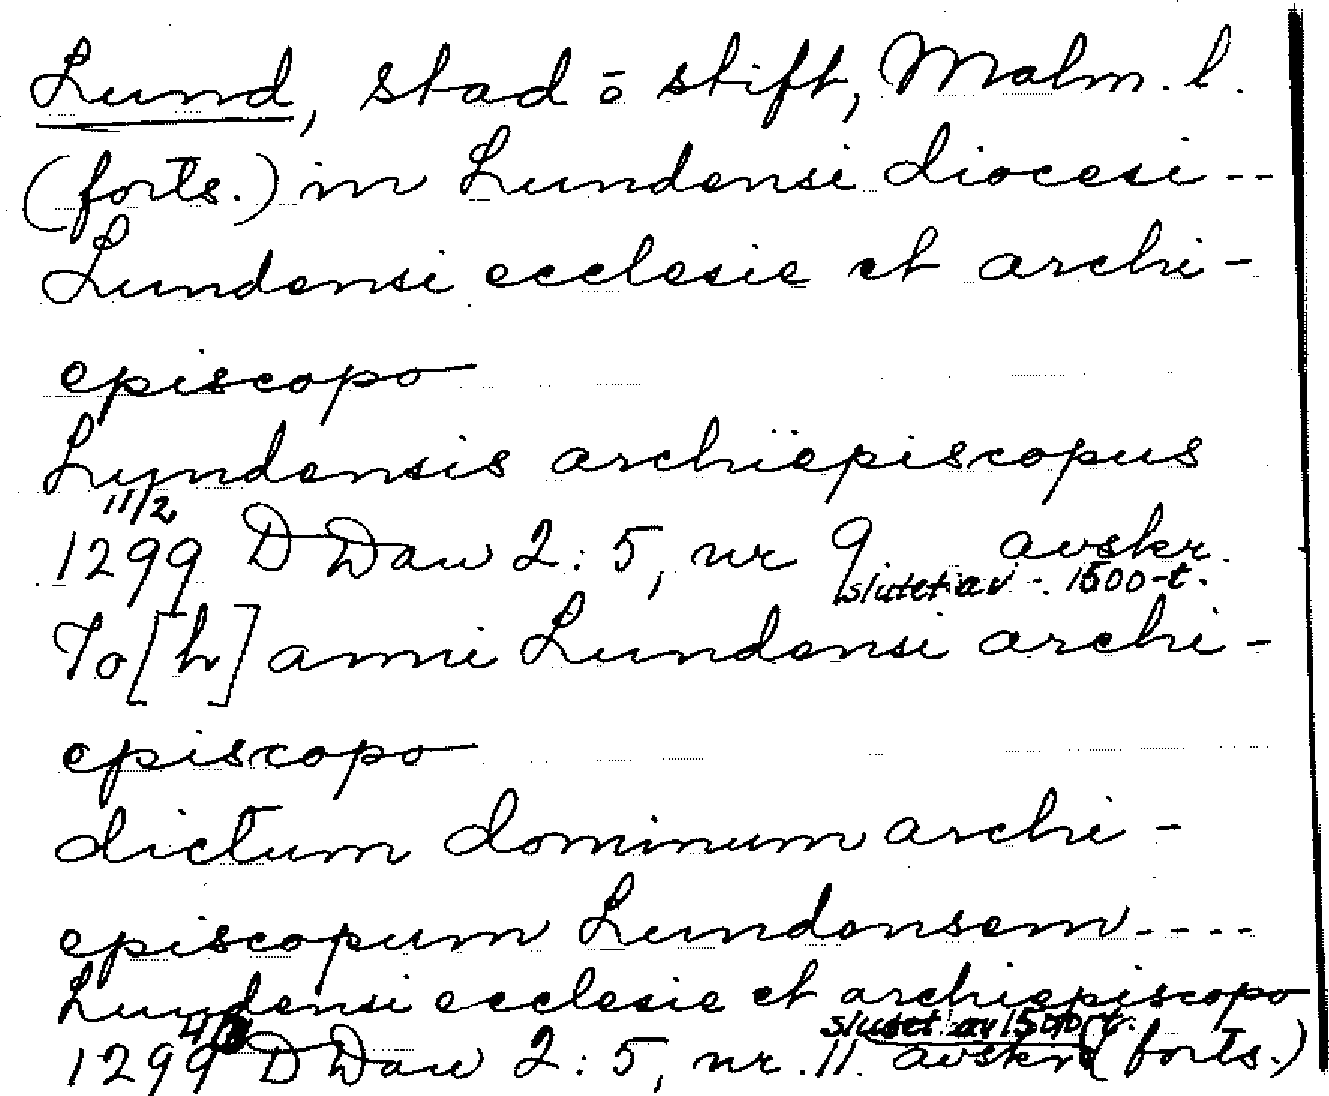 Lund, stad o stift, Malm. l.
(forts.) in Lundensi diocesi --
Lundensi ecclesie et archi-
episcopo
Lundensis archiepiscopus
11/2
1299 D Daw 2:5, nr 9 avskr.
slutet av 1500-t.
Jo[h]anni Lundensi archi-
episcopo
dictum dominum archi-
episcopum Lundensem ----
Lundensi ecclesie et archiepiscopo
slutet av 1500-t.
1299 D Daw 2:5, nr. 11. avskr. (forts.)